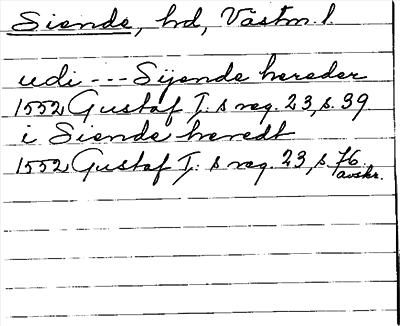 Siende, hd, Västm. l.
udi --- Sijende hereder
1552 Gustaf I:s reg. 23, s. 39
i Siende heredt
1552 Gustaf I:s reg. 23, s. 76.
avskr.